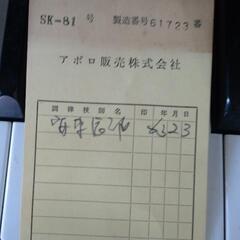 SK-81 号 製造番号 61723 番
アポロ販売株式会社
調律技師名 印 年月日
6323